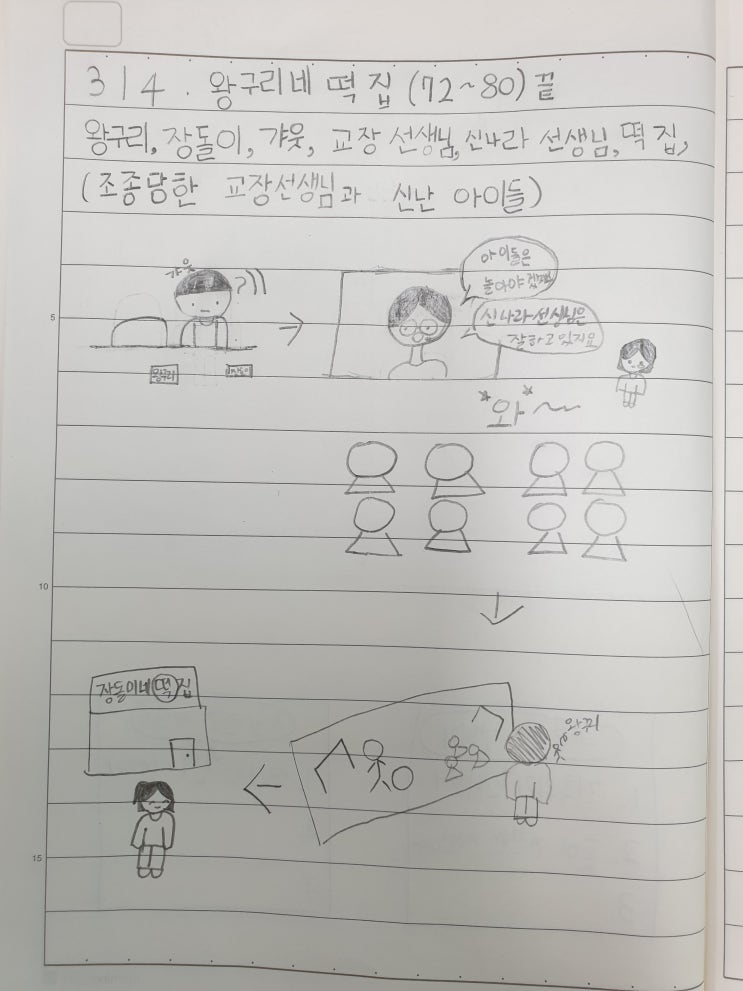 314. 왕구리네 떡 집 (72~80) 끝
왕구리, 장돌이, 갸웃, 교장 선생님, 신나라 선생님, 떡 집,
(조종당한 교장선생님과 신난 아이들)
갸웃
?
아이들은
놀아야
신나라 선생님은
잘하고 있지요
왕구리
5
*와*~
10
장돌이네 떡 집
왕구리
15